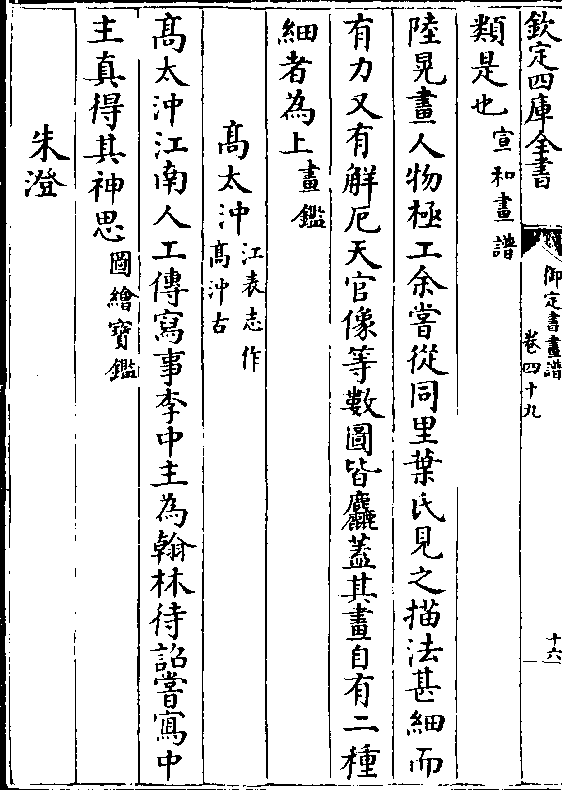 欽定四庫全書
御定書畫譜
卷四十九
十六
類是也宣和畫譜
陸晃畫人物極工余嘗從同里葉氏見之描法甚細而
有力又有解厄天官像等數圖皆麤蓋其畫自有二種
細者為上畫鑑
高太沖江表志作
高沖古
高太沖江南人工傳寫事李中主為翰林待詔嘗寫中
主真得其神思圖繪寶鑑
朱澄